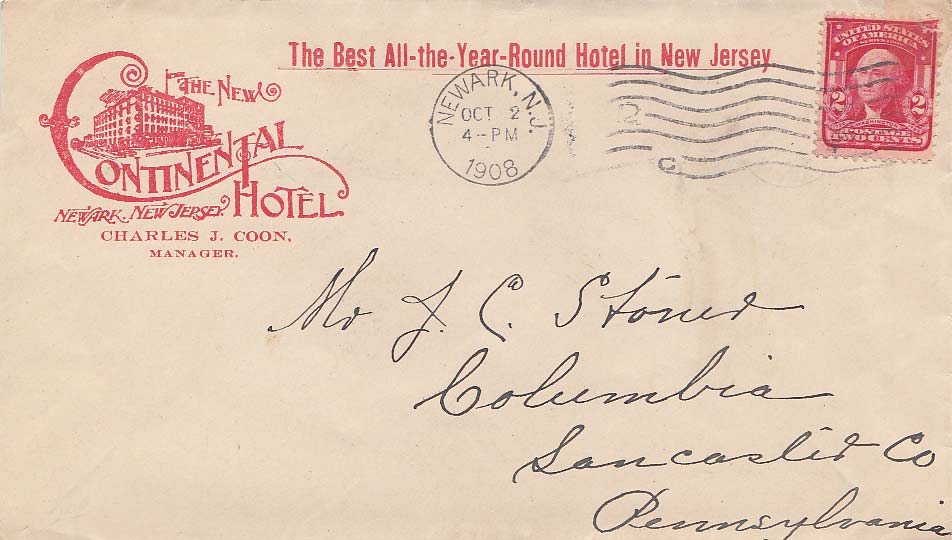 The Best All-the-Year-Round Hotel in New Jersey.
THE NEW
CONTINENTAL
HOTEL
NEWARK, NEW JERSEY.
CHARLES J. COON,
MANAGER.
NEWARK, N.J.
OCT 2
4-PM
1908
2
C
UNITED STATES
OF AMERICA
2 2
POSTAGE
TWO CENTS
Mr J. C. Stoner
Columbia
Lancaster Co
Pennsylvania